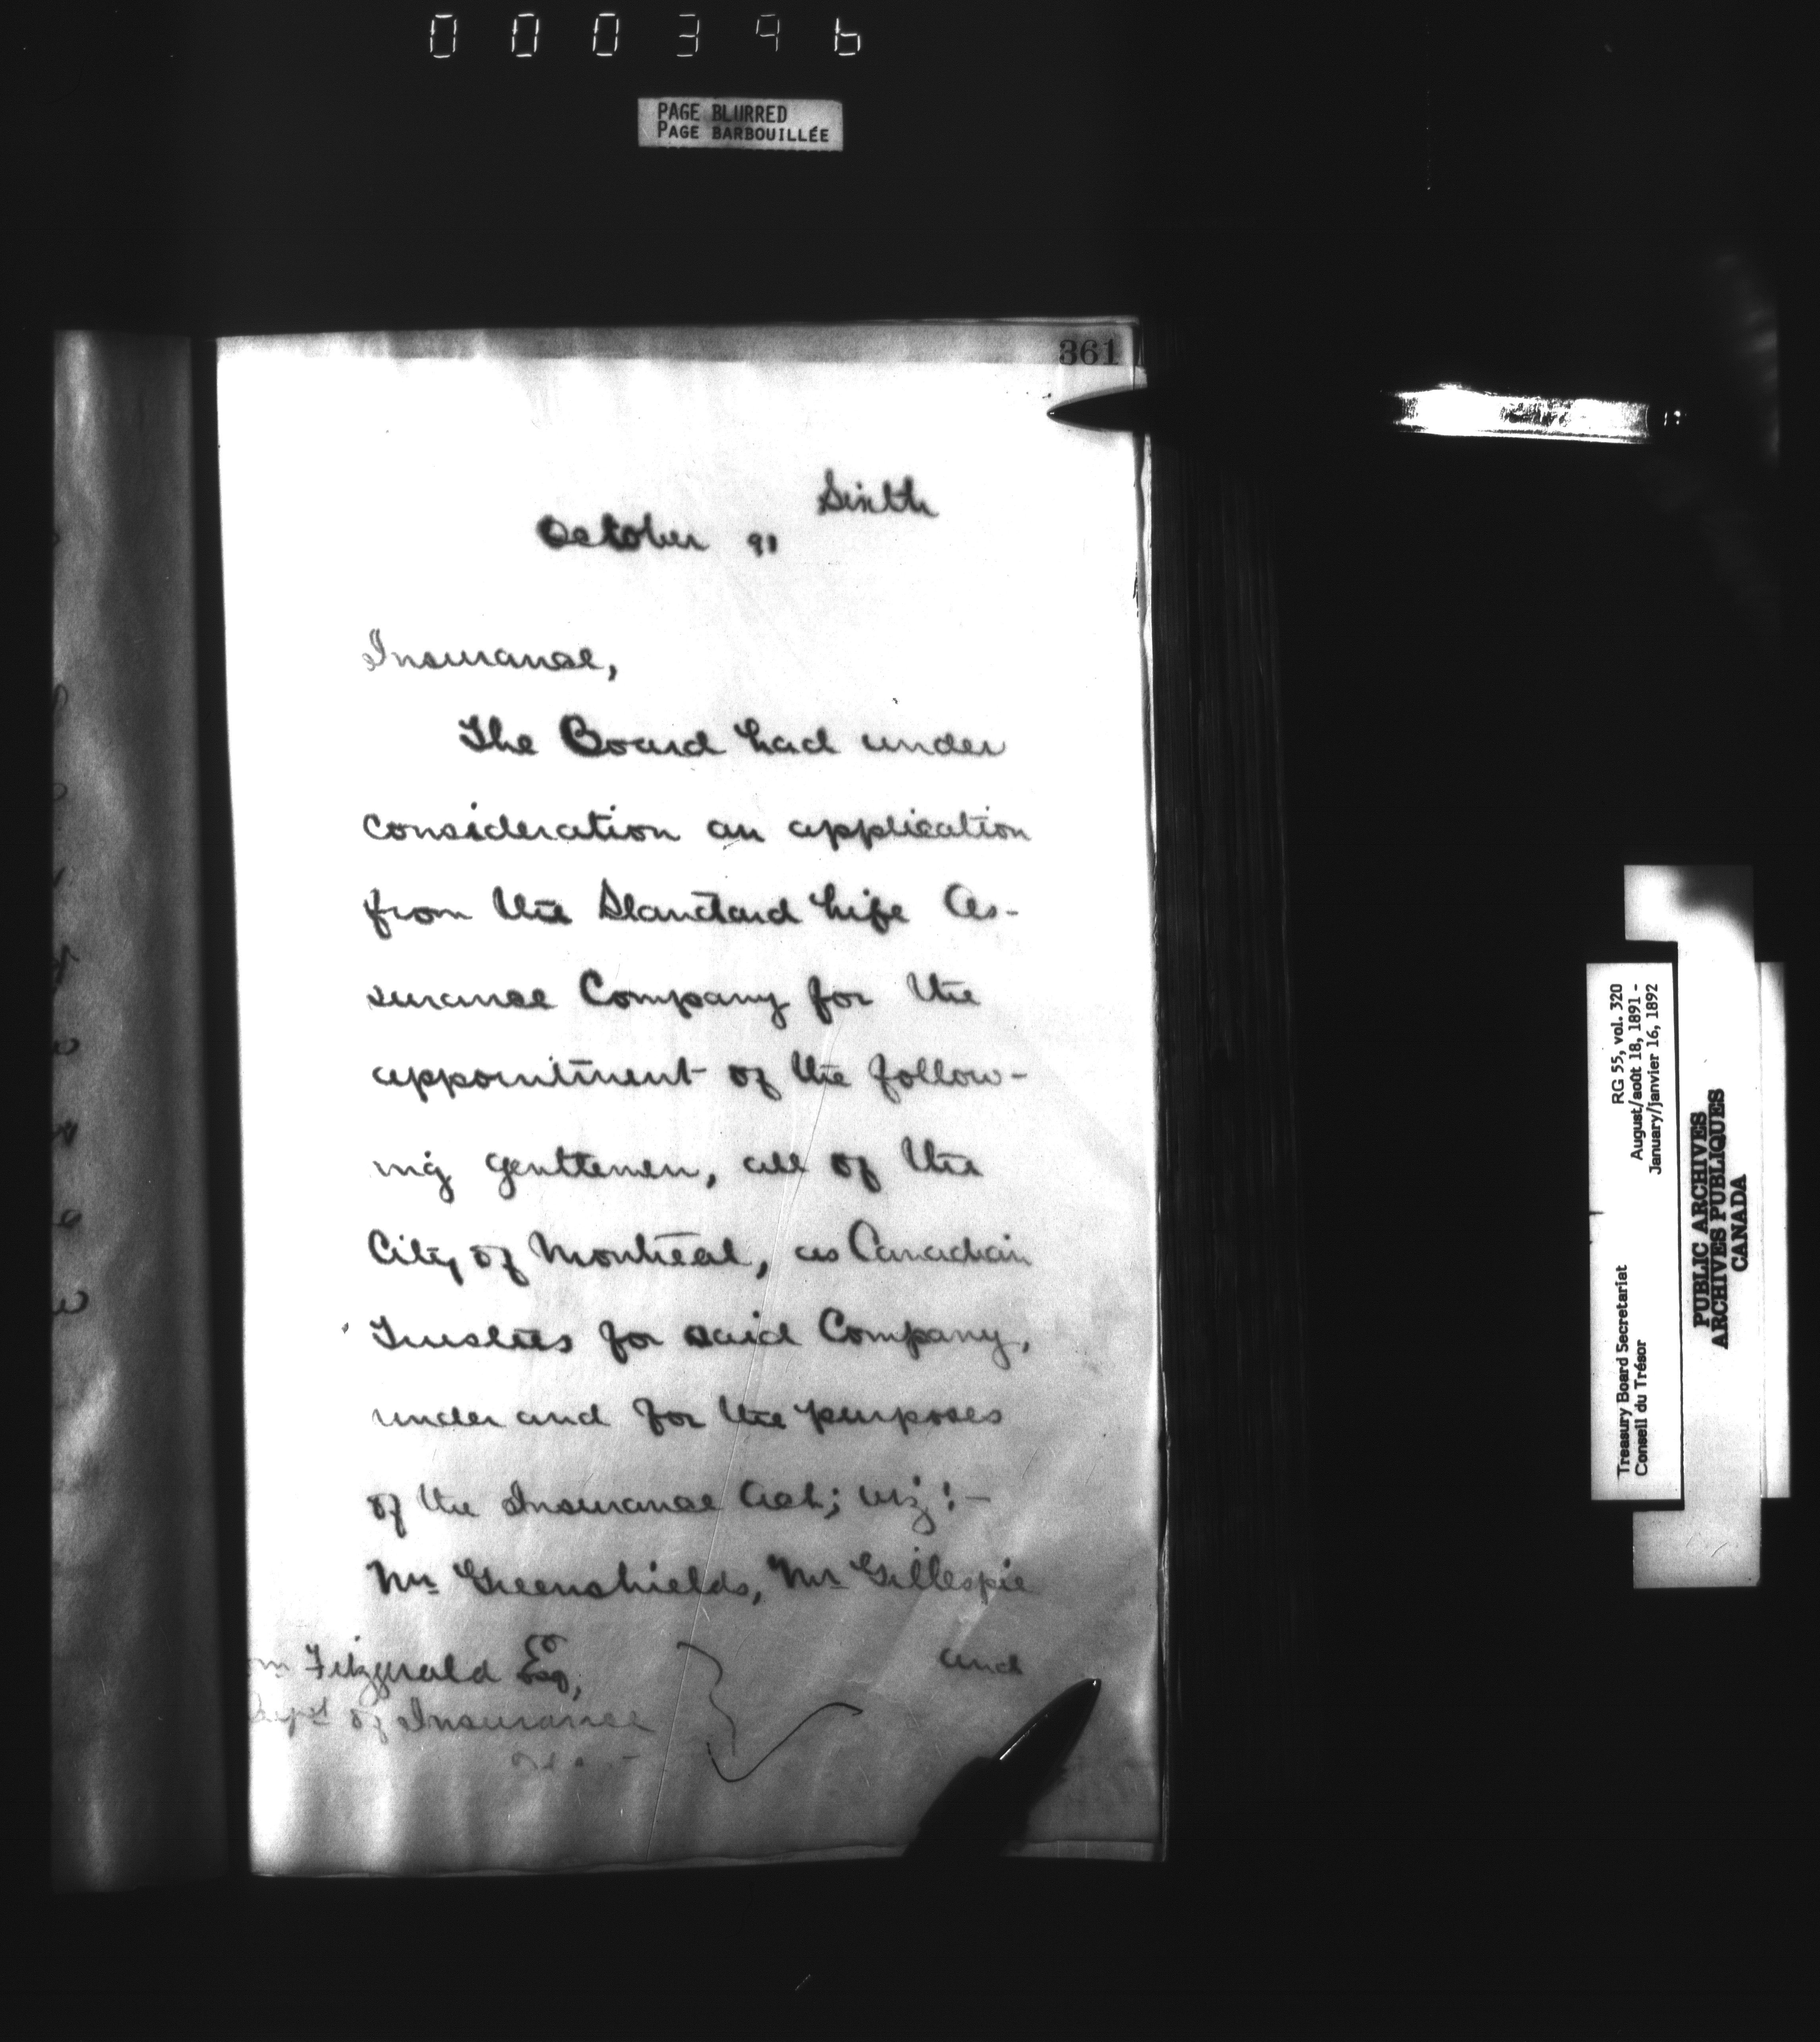 000396
PAGE BLURRED
PAGE BARBOUILLÉE
361
Sixth
October 91
Insurance,
The Board had under
consideration an application
from the Standard Life As-
surance Company for the
appointment of the follow-
ing gentlemen, all of the
City of Montreal, as Canadian
Trustees for said Company,
under and for the purposes
of the Insurance Act; viz:-
Mr Greenshields, Mr Gillespie
and
Fitzgerald Esq,
of Insurance
RG 55, vol. 320
August/août 18, 1891 -
January/janvier 16, 1892
Treasury Board Secretariat
Conseil du Trésor
PUBLIC ARCHIVES
ARCHIVES PUBLIQUES
CANADA